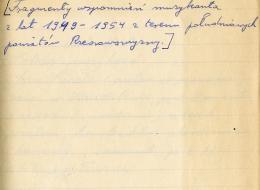 [Fragmenty wspomnień muzykanta
z lat 1949-1954 z terenu południowych
powiatów Rzeszowszczyzny.]